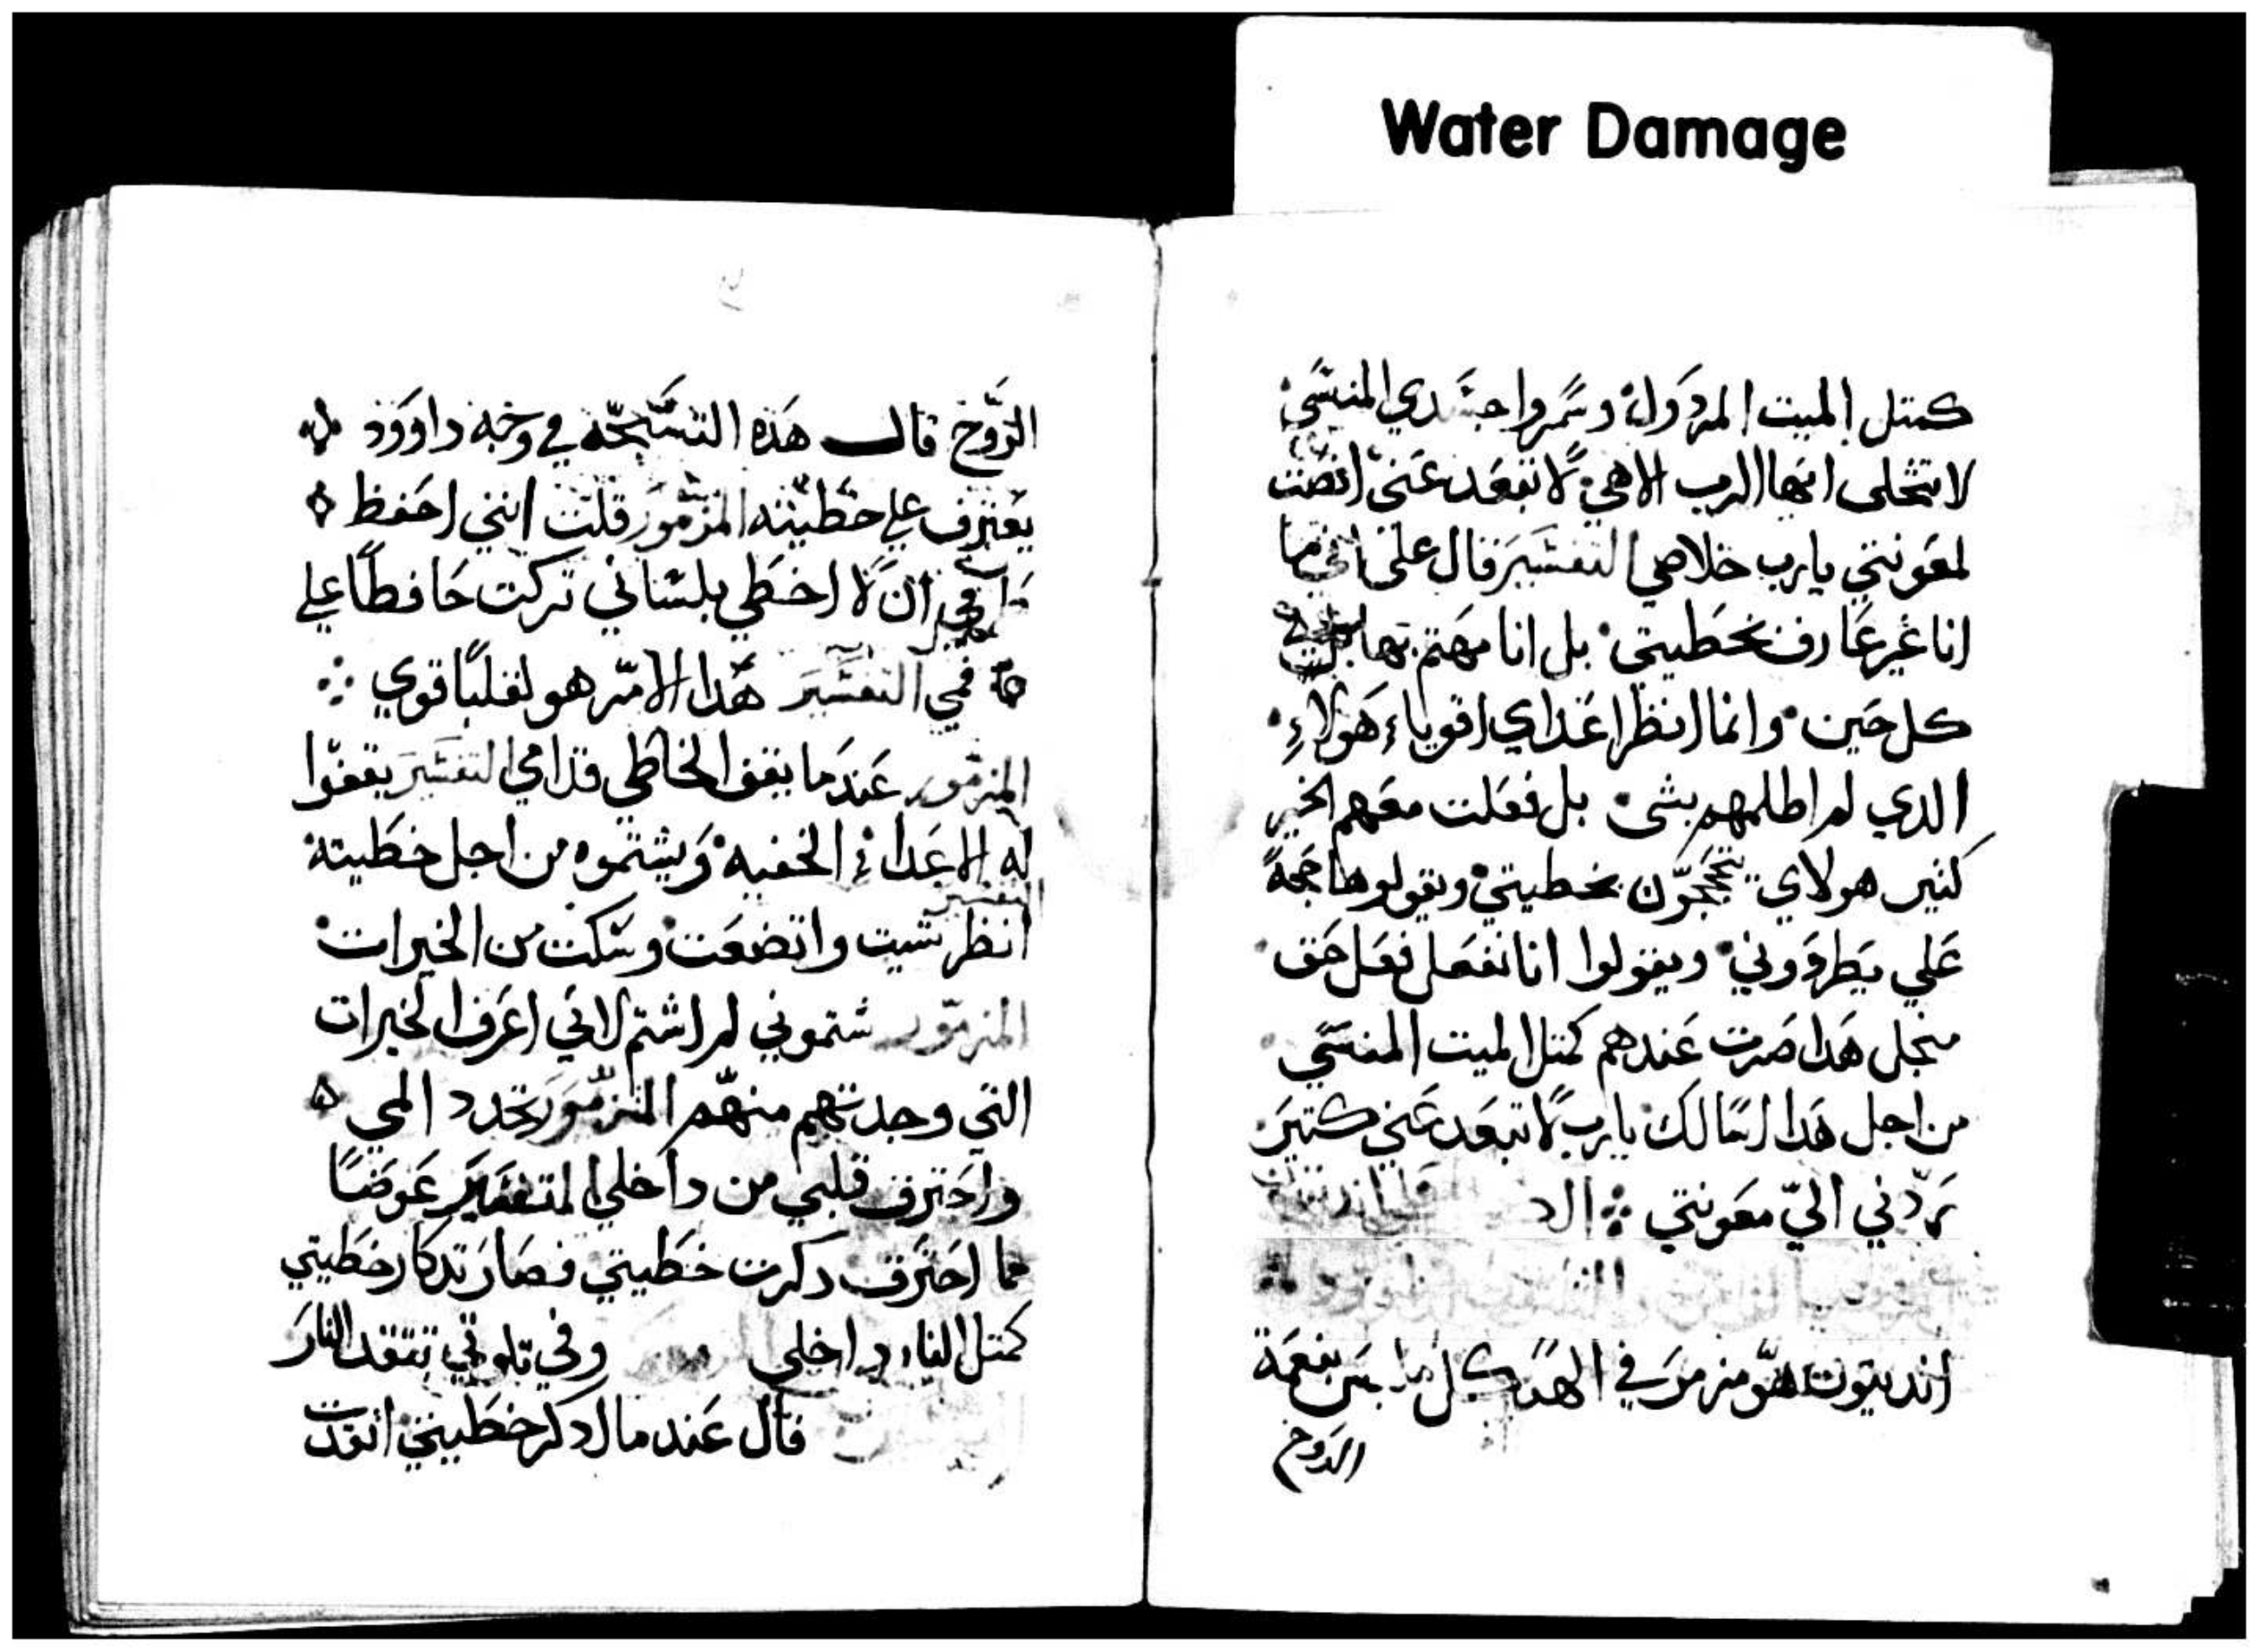 Water Damage
كمتل الميت المردول وسمروا جسدي المنسي
لا تتخلى ايها الرب الاهي لا تبعد عني انصت
لمعونتي يارب خلاصي التفسير قال على اني ما
انا غير عارف بخطيتي بل انا مهتم بها
كل حين وانما انظر اعداي اقوياء هولاء
الدي لم اظلمهم بشى بل فعلت معهم الخير
كتير هولاي بخطيتي ويقولوها حجة
علي يطردوني ويقولوا انا نفعل فعل حق
منجل هدا صرت عندهم كمتل الميت المنسي
من اجل هدا اسالك يارب لا تبعد عني كتير
تردني الي معونتي
انديتون هو مزمر في الهيكل بنعمة
الروح
الروح قال هذه التسبحه في وجه داوود
يعترف على خطيته المزمور قلت انني احفظ
ان لا اخطي بلساني تركت حافظا على
فمي التفسير هدا الامر هو لقلبا قوي
المزمور عندما يقف الخاطي قدامي التفسير يقفوا
له الاعداء الخفيه ويشتموه من اجل خطيته
التفسير
انظر نسيت واتضعت وسكت من الخيرات
المزمور شتموني لم اشتم لاني اعرف الخيرات
التي وجدتهم منهم المزمور تجدد المي
واحترق قلبي من داخلي التفسير عوضا
مما احترق دكرت خطيتي فصار تدكار خطيتي
كمتل النار داخلي وفي تلوتي تتقد النار
قال عندما ادكر خطيتي اتقدت